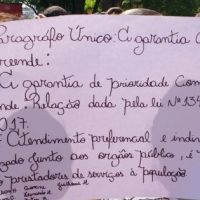 Paragráfo Único: A garantia
reende:
A garantia de prioridade Com
nde. Relação dada pela lei Nº 134
2017:
Atendimento preferencial e indi
zado junto aos orgãos público, é
prestadores de serviços à população